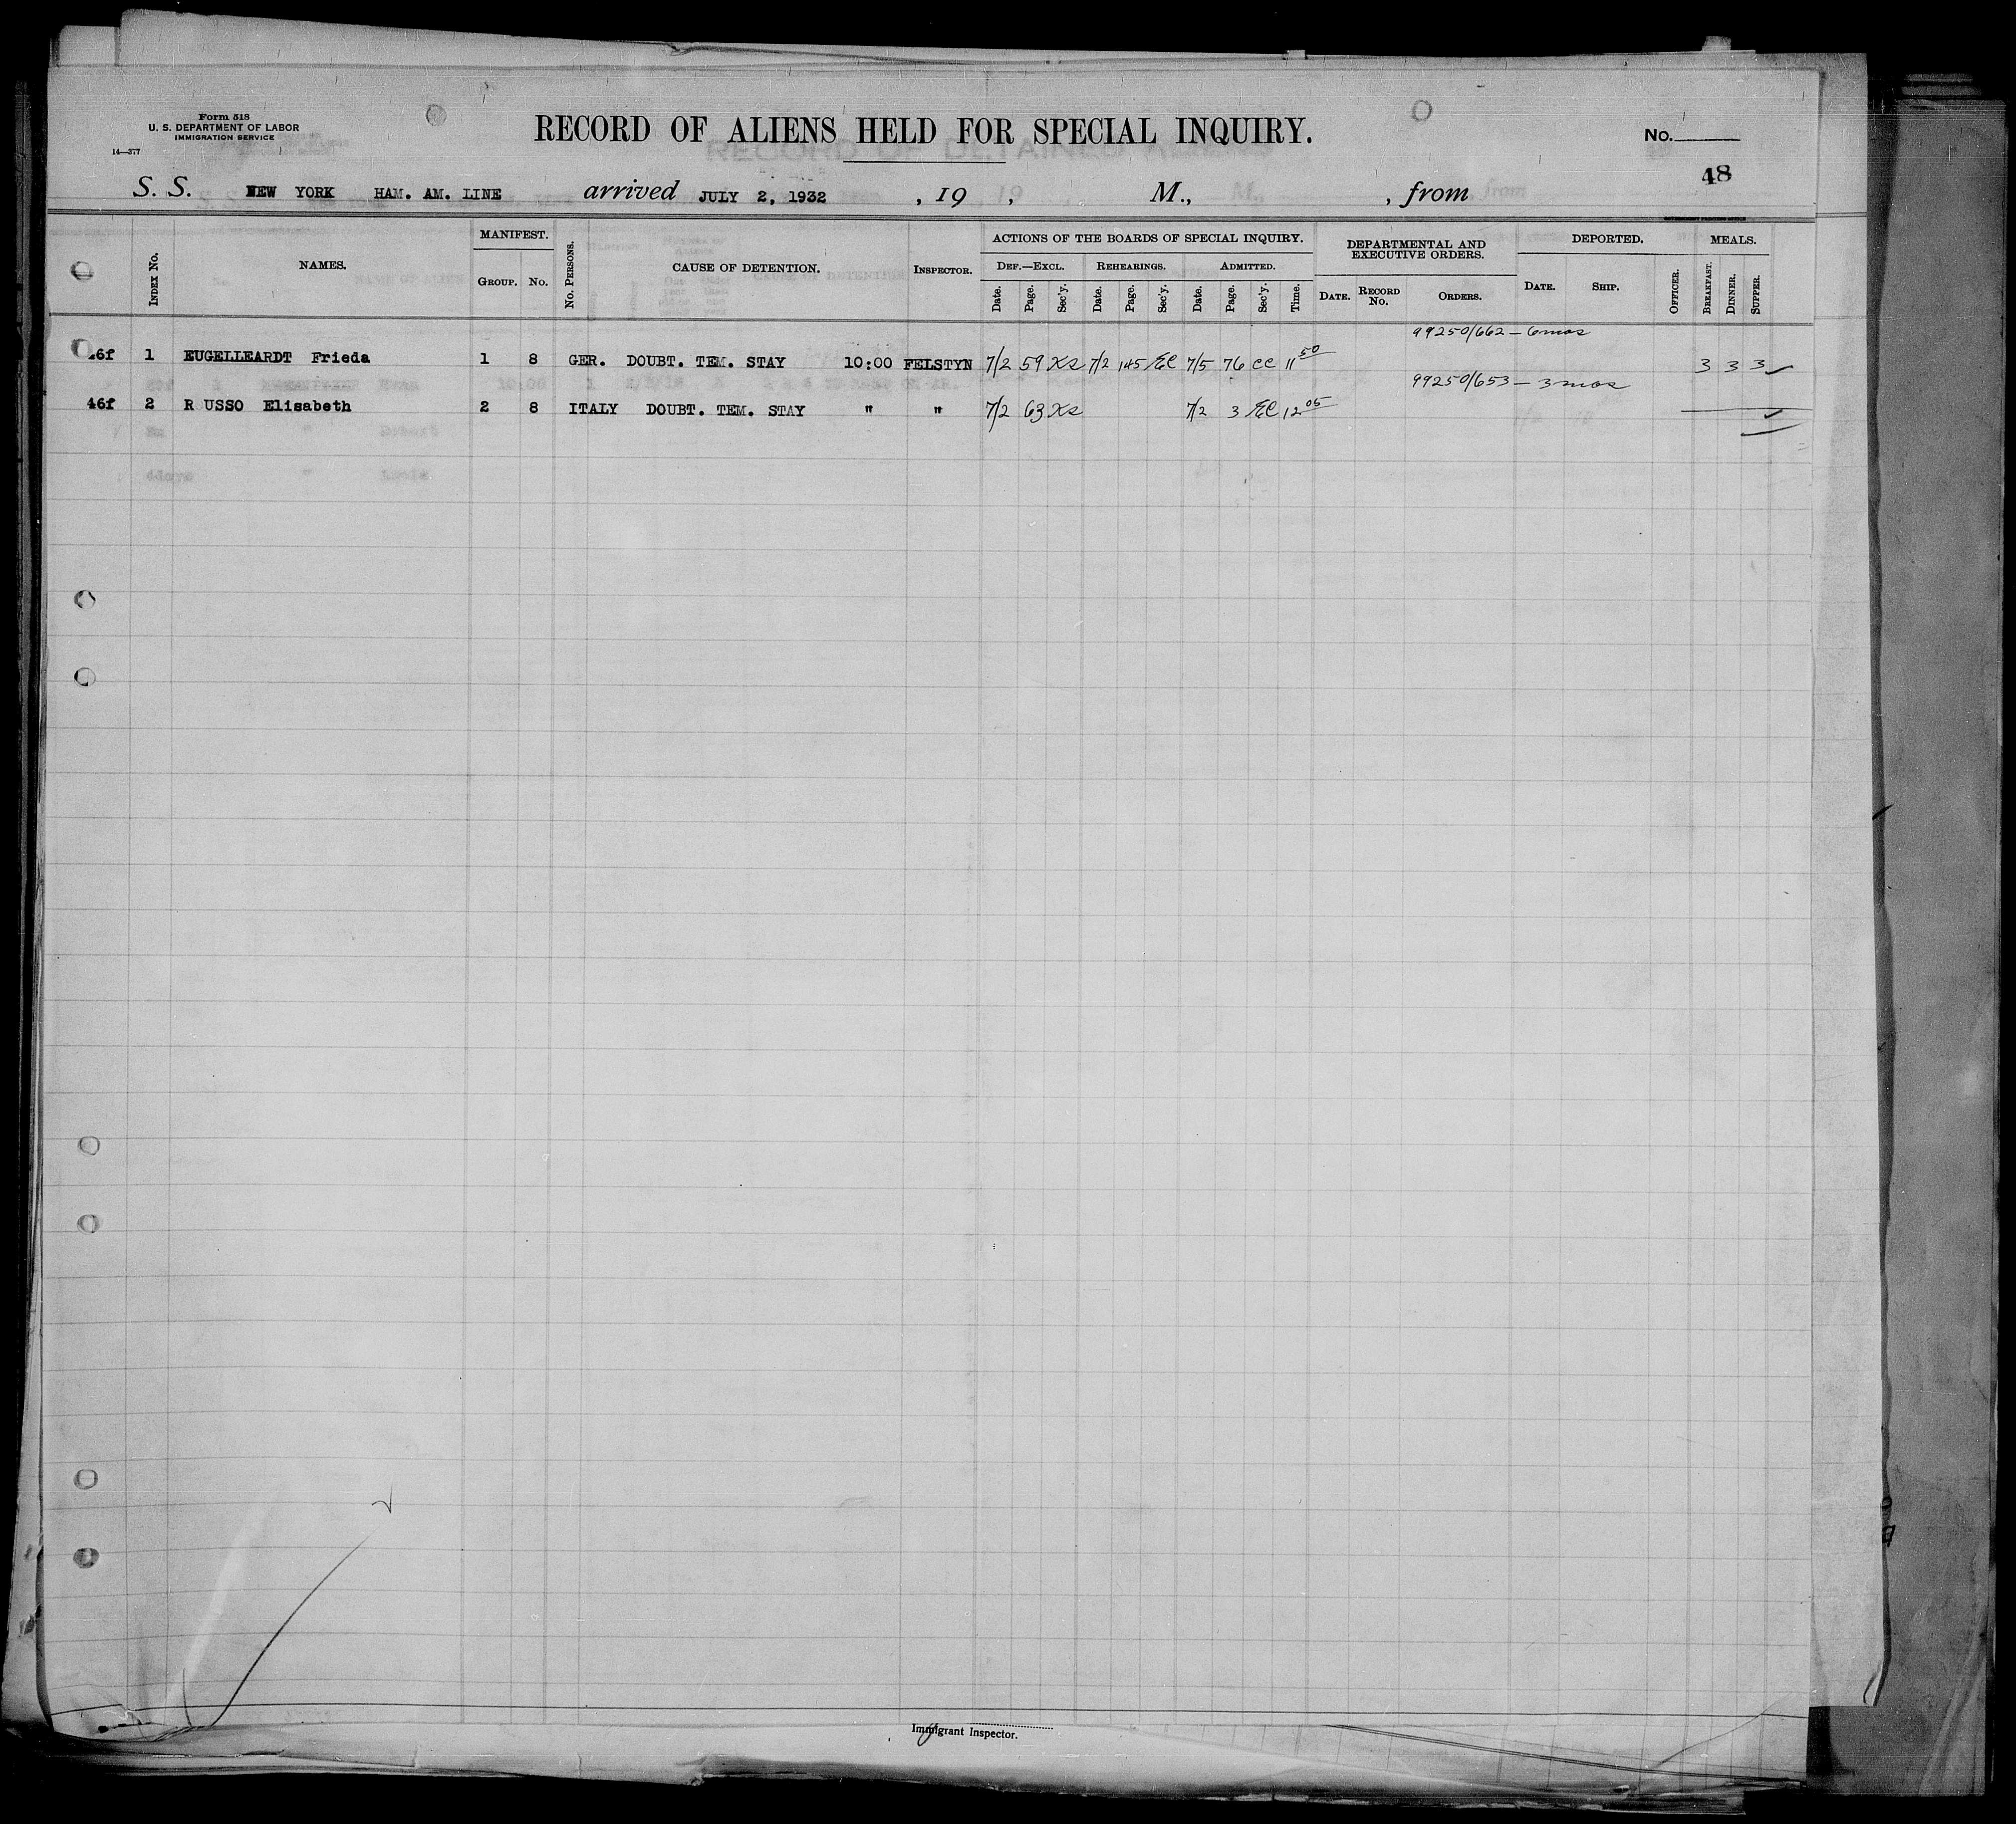 Form 518
U. S. DEPARTMENT OF LABOR
IMMIGRATION SERVICE
14—377
RECORD OF ALIENS HELD FOR SPECIAL INQUIRY.
No.
48
S. S. NEW YORK HAM. AM. LINE arrived JULY 2, 1932 , 19 , M., , from
INDEX No. NAMES. MANIFEST. GROUP. No. No. PERSONS. CAUSE OF DETENTION. INSPECTOR. ACTIONS OF THE BOARDS OF SPECIAL INQUIRY. DEF.—EXCL. Date. Page. Sec'y. REHEARINGS. Date. Page. Sec'y. ADMITTED. Date. Page. Sec'y. Time. DEPARTMENTAL AND EXECUTIVE ORDERS. DATE. RECORD No. ORDERS. DEPORTED. DATE. SHIP. OFFICER. MEALS. BREAKFAST. DINNER. SUPPER.
99250/662 — 6 mos
46f 1 EUGELLEARDT Frieda 1 8 GER. DOUBT. TEM. STAY 10:00 FELSTYN 7/2 59 Ks 7/2 145 EC 7/5 76 CC 11 50 3 3 3 ✓
99250/653 — 3 mos
46f 2 R USSO Elisabeth 2 8 ITALY DOUBT. TEM. STAY " " 7/2 63 Ks 7/2 3 EC 12 05 ✓
Immigrant Inspector.